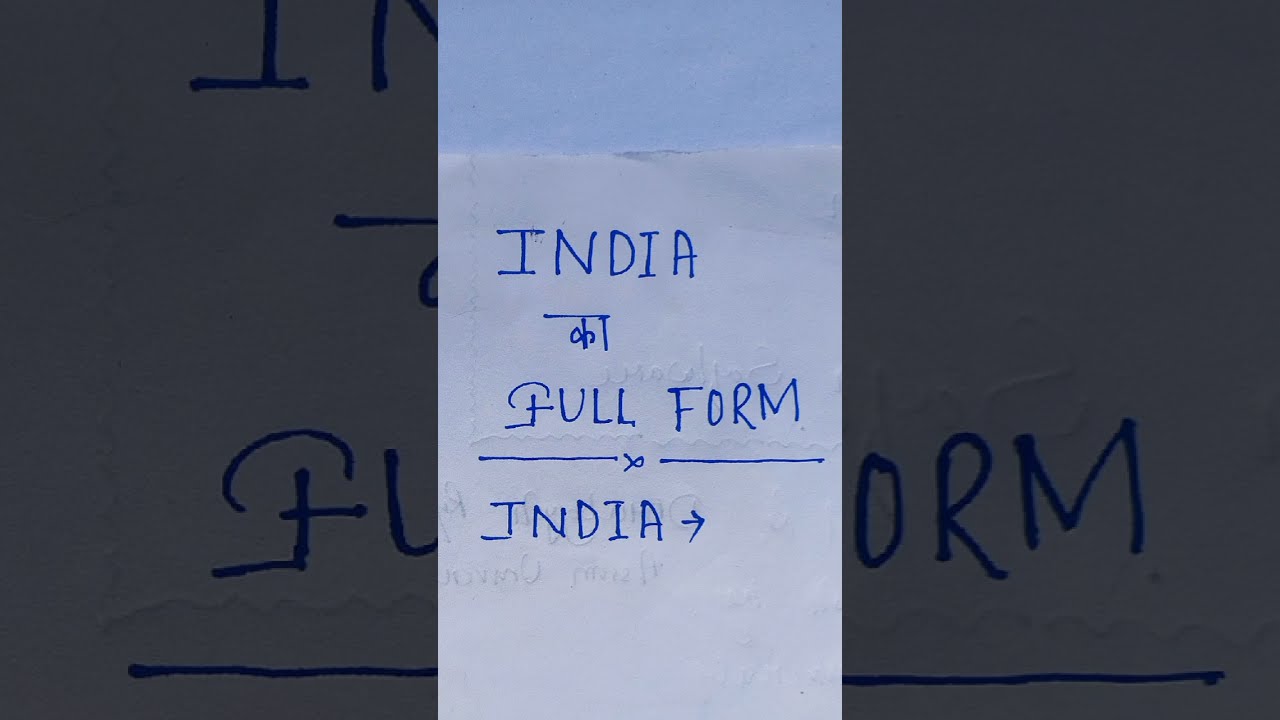 INDIA
का
FULL FORM
INDIA →